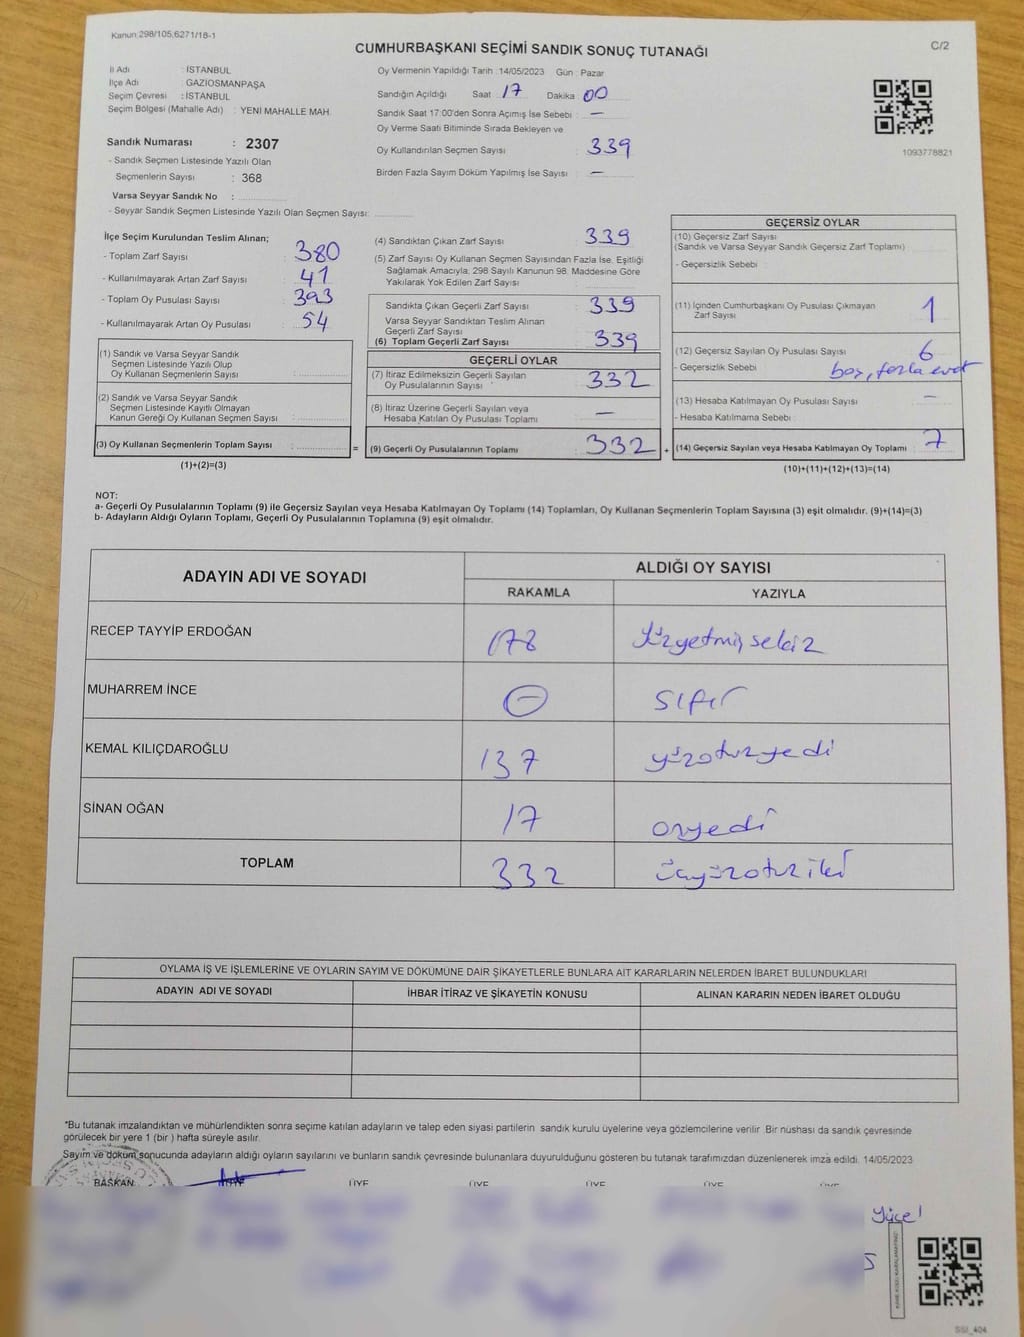 Kanun:298/105,6271/18-1
C/2
CUMHURBAŞKANI SEÇİMİ SANDIK SONUÇ TUTANAĞI
İl Adı : İSTANBUL
İlçe Adı : GAZİOSMANPAŞA
Seçim Çevresi : İSTANBUL
Seçim Bölgesi (Mahalle Adı) : YENİ MAHALLE MAH.
Sandık Numarası : 2307
- Sandık Seçmen Listesinde Yazılı Olan
Seçmenlerin Sayısı : 368
Varsa Seyyar Sandık No :
- Seyyar Sandık Seçmen Listesinde Yazılı Olan Seçmen Sayısı:
Oy Vermenin Yapıldığı Tarih :14/05/2023 Gün : Pazar
Sandığın Açıldığı Saat : 17 Dakika : 00
Sandık Saat 17:00'den Sonra Açımış İse Sebebi : —
Oy Verme Saati Bitiminde Sırada Bekleyen ve
Oy Kullandırılan Seçmen Sayısı : 339
Birden Fazla Sayım Döküm Yapılmış İse Sayısı : —
1093778821
İlçe Seçim Kurulundan Teslim Alınan;
- Toplam Zarf Sayısı : 380
- Kullanılmayarak Artan Zarf Sayısı : 41
- Toplam Oy Pusulası Sayısı : 393
- Kullanılmayarak Artan Oy Pusulası : 54
(1) Sandık ve Varsa Seyyar Sandık
Seçmen Listesinde Yazılı Olup
Oy Kullanan Seçmenlerin Sayısı :
(2) Sandık ve Varsa Seyyar Sandık
Seçmen Listesinde Kayıtlı Olmayan
Kanun Gereği Oy Kullanan Seçmen Sayısı :
(3) Oy Kullanan Seçmenlerin Toplam Sayısı : =
(1)+(2)=(3)
(4) Sandıktan Çıkan Zarf Sayısı : 339
(5) Zarf Sayısı Oy Kullanan Seçmen Sayısından Fazla İse, Eşitliği
Sağlamak Amacıyla, 298 Sayılı Kanunun 98. Maddesine Göre
Yakılarak Yok Edilen Zarf Sayısı :
Sandıkta Çıkan Geçerli Zarf Sayısı : 339
Varsa Seyyar Sandıktan Teslim Alınan
Geçerli Zarf Sayısı :
(6) Toplam Geçerli Zarf Sayısı : 339
GEÇERLİ OYLAR
(7) İtiraz Edilmeksizin Geçerli Sayılan
Oy Pusulalarının Sayısı : 332
(8) İtiraz Üzerine Geçerli Sayılan veya
Hesaba Katılan Oy Pusulası Toplamı : —
(9) Geçerli Oy Pusulalarının Toplamı : 332 +
GEÇERSİZ OYLAR
(10) Geçersiz Zarf Sayısı
(Sandık ve Varsa Seyyar Sandık Geçersiz Zarf Toplamı) :
- Geçersizlik Sebebi :
(11) İçinden Cumhurbaşkanı Oy Pusulası Çıkmayan
Zarf Sayısı : 1
(12) Geçersiz Sayılan Oy Pusulası Sayısı : 6
- Geçersizlik Sebebi : boş, fazla evet
(13) Hesaba Katılmayan Oy Pusulası Sayısı : —
- Hesaba Katılmama Sebebi :
(14) Geçersiz Sayılan veya Hesaba Katılmayan Oy Toplamı : 7
(10)+(11)+(12)+(13)=(14)
NOT:
a- Geçerli Oy Pusulalarının Toplamı (9) ile Geçersiz Sayılan veya Hesaba Katılmayan Oy Toplamı (14) Toplamları, Oy Kullanan Seçmenlerin Toplam Sayısına (3) eşit olmalıdır. (9)+(14)=(3)
b- Adayların Aldığı Oyların Toplamı, Geçerli Oy Pusulalarının Toplamına (9) eşit olmalıdır.
ADAYIN ADI VE SOYADI ALDIĞI OY SAYISI
RAKAMLA YAZIYLA
RECEP TAYYİP ERDOĞAN 178 Yüzyetmiş sekiz
MUHARREM İNCE sıfır
KEMAL KILIÇDAROĞLU 137 yüzotuzyedi
SİNAN OĞAN 17 onyedi
TOPLAM 332 üçyüzotuziki
OYLAMA İŞ VE İŞLEMLERİNE VE OYLARIN SAYIM VE DÖKÜMÜNE DAİR ŞİKAYETLERLE BUNLARA AİT KARARLARIN NELERDEN İBARET BULUNDUKLARI
ADAYIN ADI VE SOYADI İHBAR İTİRAZ VE ŞİKAYETİN KONUSU ALINAN KARARIN NEDEN İBARET OLDUĞU
*Bu tutanak imzalandıktan ve mühürlendikten sonra seçime katılan adayların ve talep eden siyasi partilerin sandık kurulu üyelerine veya gözlemcilerine verilir. Bir nüshası da sandık çevresinde
görülecek bir yere 1 (bir ) hafta süreyle asılır.
Sayım ve döküm sonucunda adayların aldığı oyların sayılarını ve bunların sandık çevresinde bulunanlara duyurulduğunu gösteren bu tutanak tarafımızdan düzenlenerek imza edildi. 14/05/2023
BAŞKAN ÜYE ÜYE ÜYE ÜYE
Yüce!
SSI_404